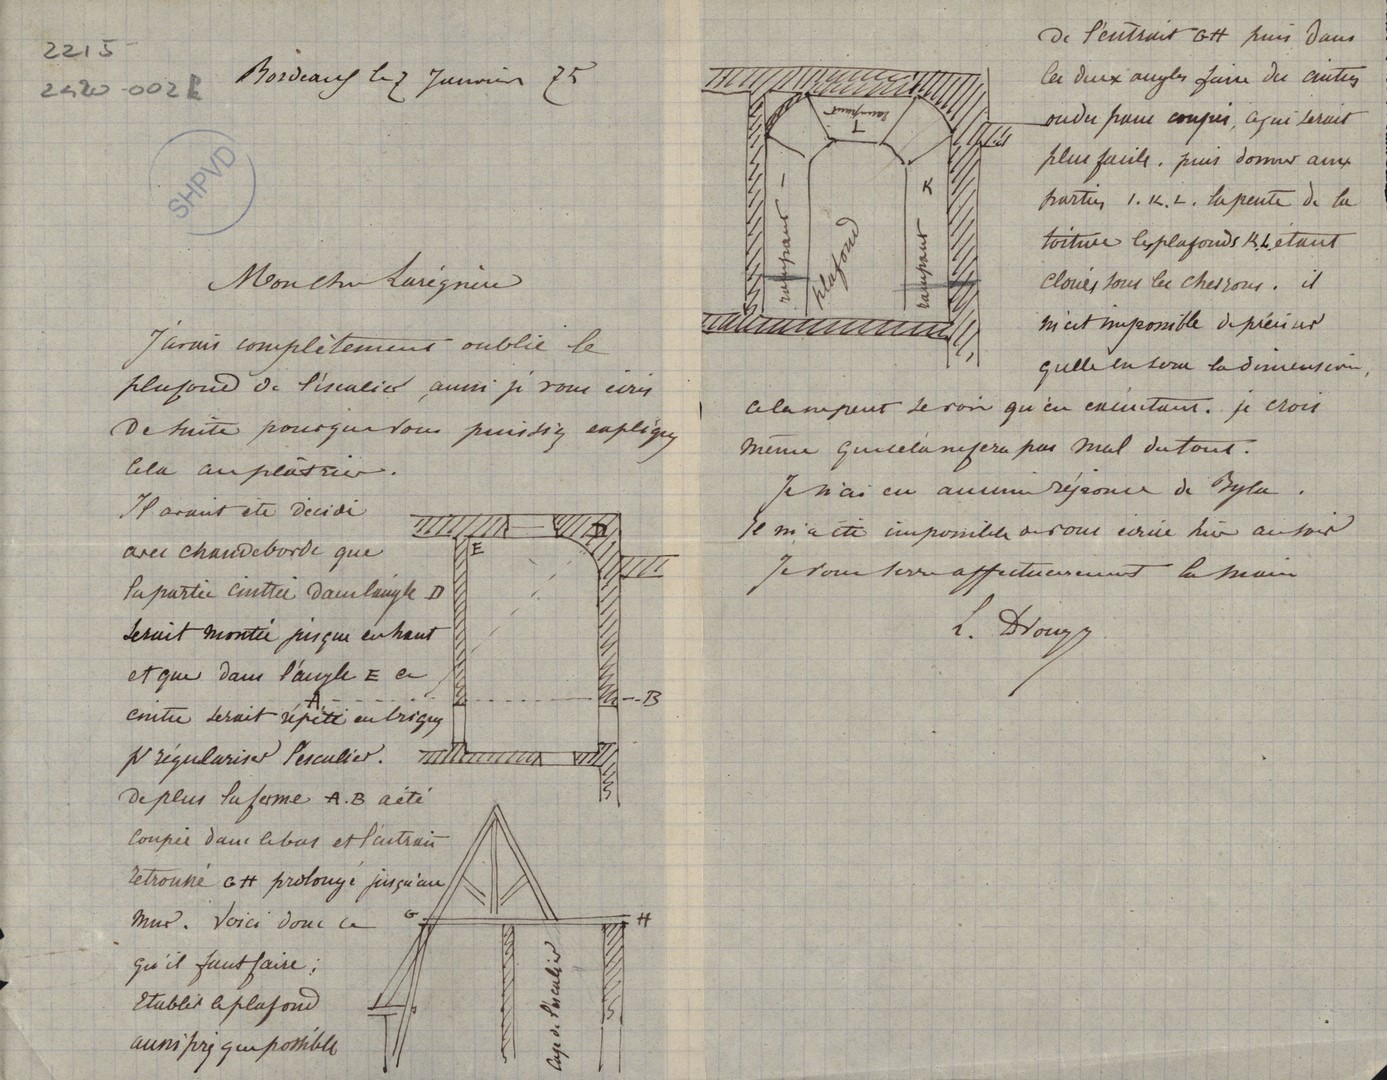 2215
2420-002
SHPVD
Bordeaux le 7 Janvier 75
Mon cher Larégnère
J'avais complètement oublié le
plafond de l'escalier, aussi je vous écris
de suite pour que vous puissiez expliquer
cela au plâtrier.
Il avait été décidé
avec chaudeborde que
la partie cintrée dans l'angle D
serait montée jusque en haut
et que dans l'angle E ce
cintre serait répété en briques
pr régulariser l'escalier.
de plus la ferme A.B a été
coupée dans le bas et l'entrait
retroussé GH prolongé jusqu'au
mur. Voici donc ce
qu'il faut faire ;
Etablir le plafond
aussi près que possible
E
D
A
B
G
H
Cage de l'escalier
rampant
L
rampant I
plafond
rampant K
de l'entrait GH puis dans
les deux angles faire des cintres
ou des pans coupés, ce qui serait
plus facile. puis donner aux
parties I. K. L. la pente de la
toiture les plafonds K.L. étant
cloués sous les chevrons. il
m'est impossible de préciser
quelle en sera la dimension,
cela ne peut se voir qu'en exécutant. je crois
même que cela ne fera pas mal du tout.
Je n'ai eu aucune réponse de
Il m'a été impossible de vous écrire hier au soir
Je vous serre affectueusement la main
L. Drouyn